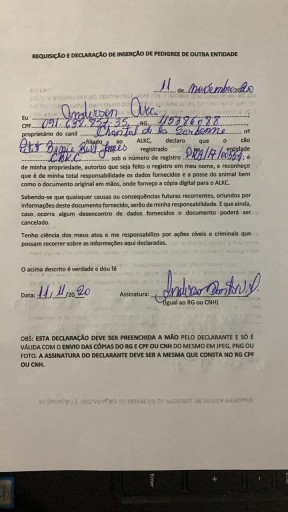 REQUISIÇÃO E DECLARAÇÃO DE INSERÇÃO DE PEDIGREE DE OUTRA ENTIDADE
11 de novembro 20
Eu Anderson
CPF RG
proprietário do canil Chantal de la Sorbonne nº
filiado ao ALKC, declaro que o cão
registrado entidade
CBKC sob o número de registro e
de minha propriedade, autorizo que seja feito o registro em meu nome, e reconheço
que é de minha total responsabilidade os dados fornecidos e a posse do animal bem
como o documento original em mãos, onde forneço a cópia digital para o ALKC.
Sabendo-se que quaisquer causas ou consequências futuras recorrentes, oriundos por
informações deste documento fornecido, serão de minha responsabilidade. E que ainda,
caso ocorra algum desencontro de dados fornecidos o documento poderá ser
cancelado.
Tenho ciência dos meus atos e me responsabilizo por ações cíveis e criminais que
possam recorrer sobre as informações aqui declaradas.
O acima descrito é verdade e dou fé
Data: 11/11/2020 Assinatura:
(igual ao RG ou CNH)
OBS: ESTA DECLARAÇÃO DEVE SER PREENCHIDA A MÃO PELO DECLARANTE E SÓ É
VÁLIDA COM O ENVIO DAS CÓPIAS DO RG E CPF OU CNH DO MESMO EM JPEG, PNG OU
FOTO. A ASSINATURA DO DECLARANTE DEVE SER A MESMA QUE CONSTA NO RG CPF
OU CNH.
Enter
+